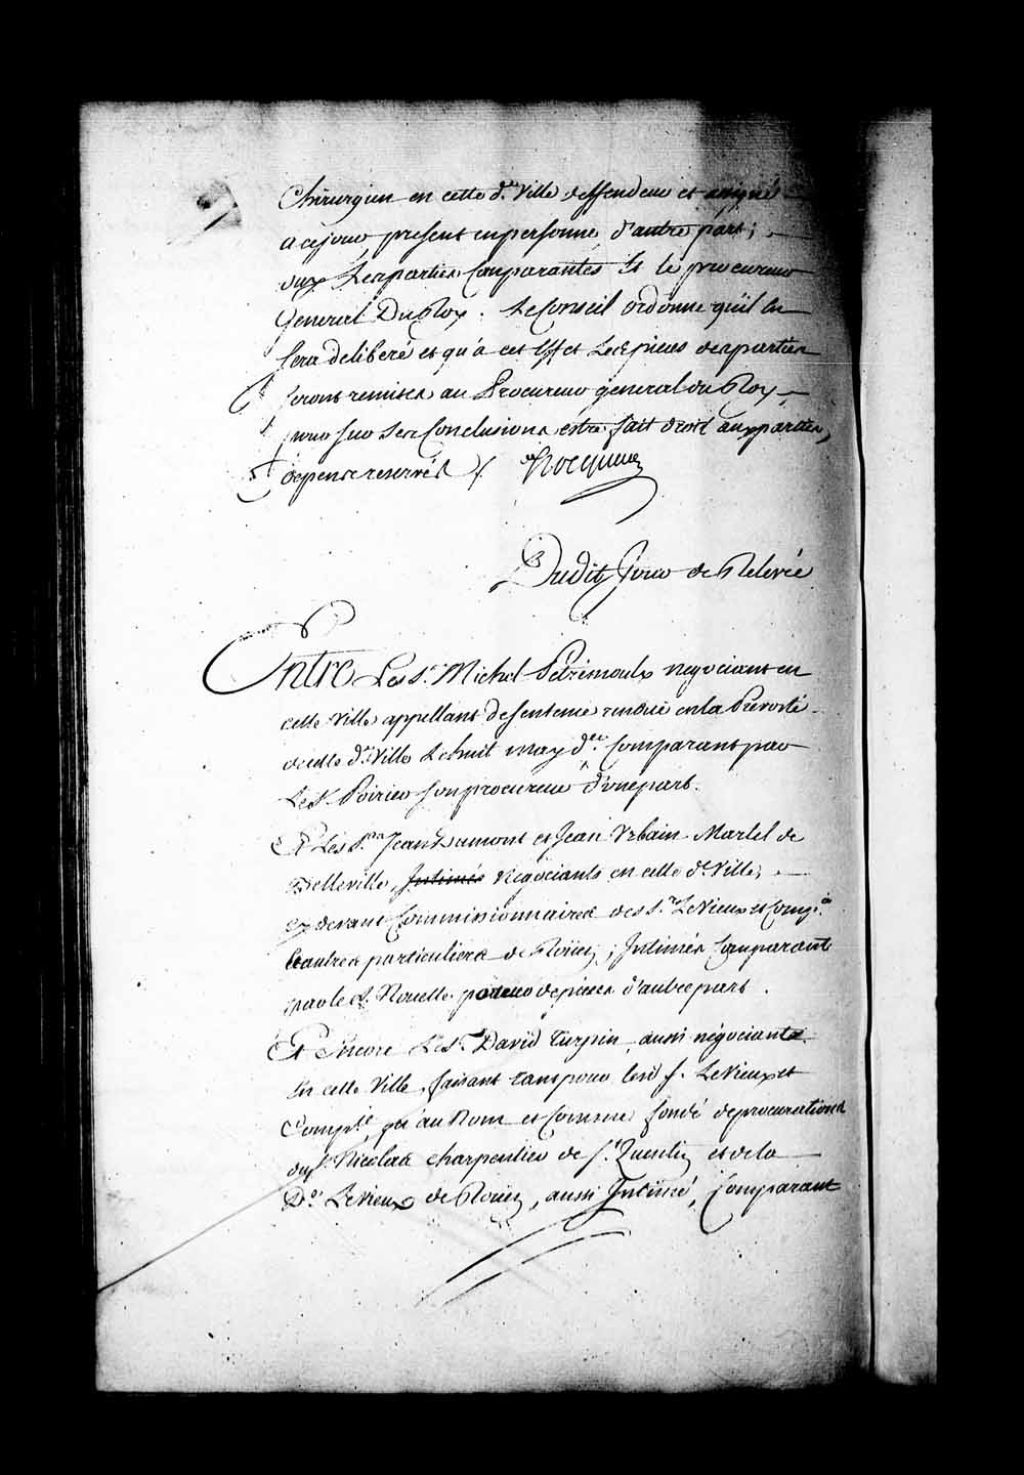 Chirurgien en cette d.te Ville deffendeur et assigné
a ce jour, present en personne, d'autre part;
ouy Les parties Comparantes Et le procureur
General Du Roy. Le Conseil ordonne qu'il En
sera deliberé et qu'a cet Effet Les pieces des parties
seront remises au Procureur general du Roy
pour sur ses Conclusions estre fait droit aux parties,
depens reservés /. Hocquart
Dudit Jour de Relevée
Entre Le S.r Michel Petrimoulx negociant en
cette Ville appellant de sentence rendue en la Prevosté
de cette d.te Ville Le huit may d.er Comparant par
Le S.r Poirier son procureur d'une part.
Et Les S.rs Jean Dumont et Jean Urbain Martel de
Belleville, Intimés negociants en cette d.e Ville,
cy devant Commissionnaires des S.rs Le Vieux et Comp.ie
et autres particuliers de Roüen; Intimés Comparant
par le S. Nouette porteur de pieces d'autre part.
Et Encore Le S.r David Turpin, aussi négociant
En cette Ville, faisant tant pour les d. S. Le Vieux et
Comp.ie qu'au Nom et Comme fondé de procurations
du S. Nicolas Charpentier de S.t Quentin et de la
D.e Le Vieux de Roüen, aussi Intimé, Comparant